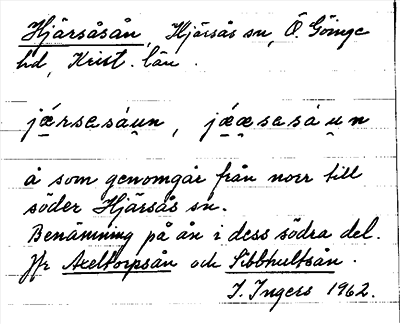 Hjärsåsån, Hjärsås sn, Ö. Göinge
hd, Krist. län.
jǽrsasáu̠n, jǽæ̠sasá u̠n
å som genomgår från norr till
söder Hjärsås sn.
Benämning på ån i dess södra del.
Jfr Axeltorpsån och Sibbhultsån.
I. Ingers 1962.